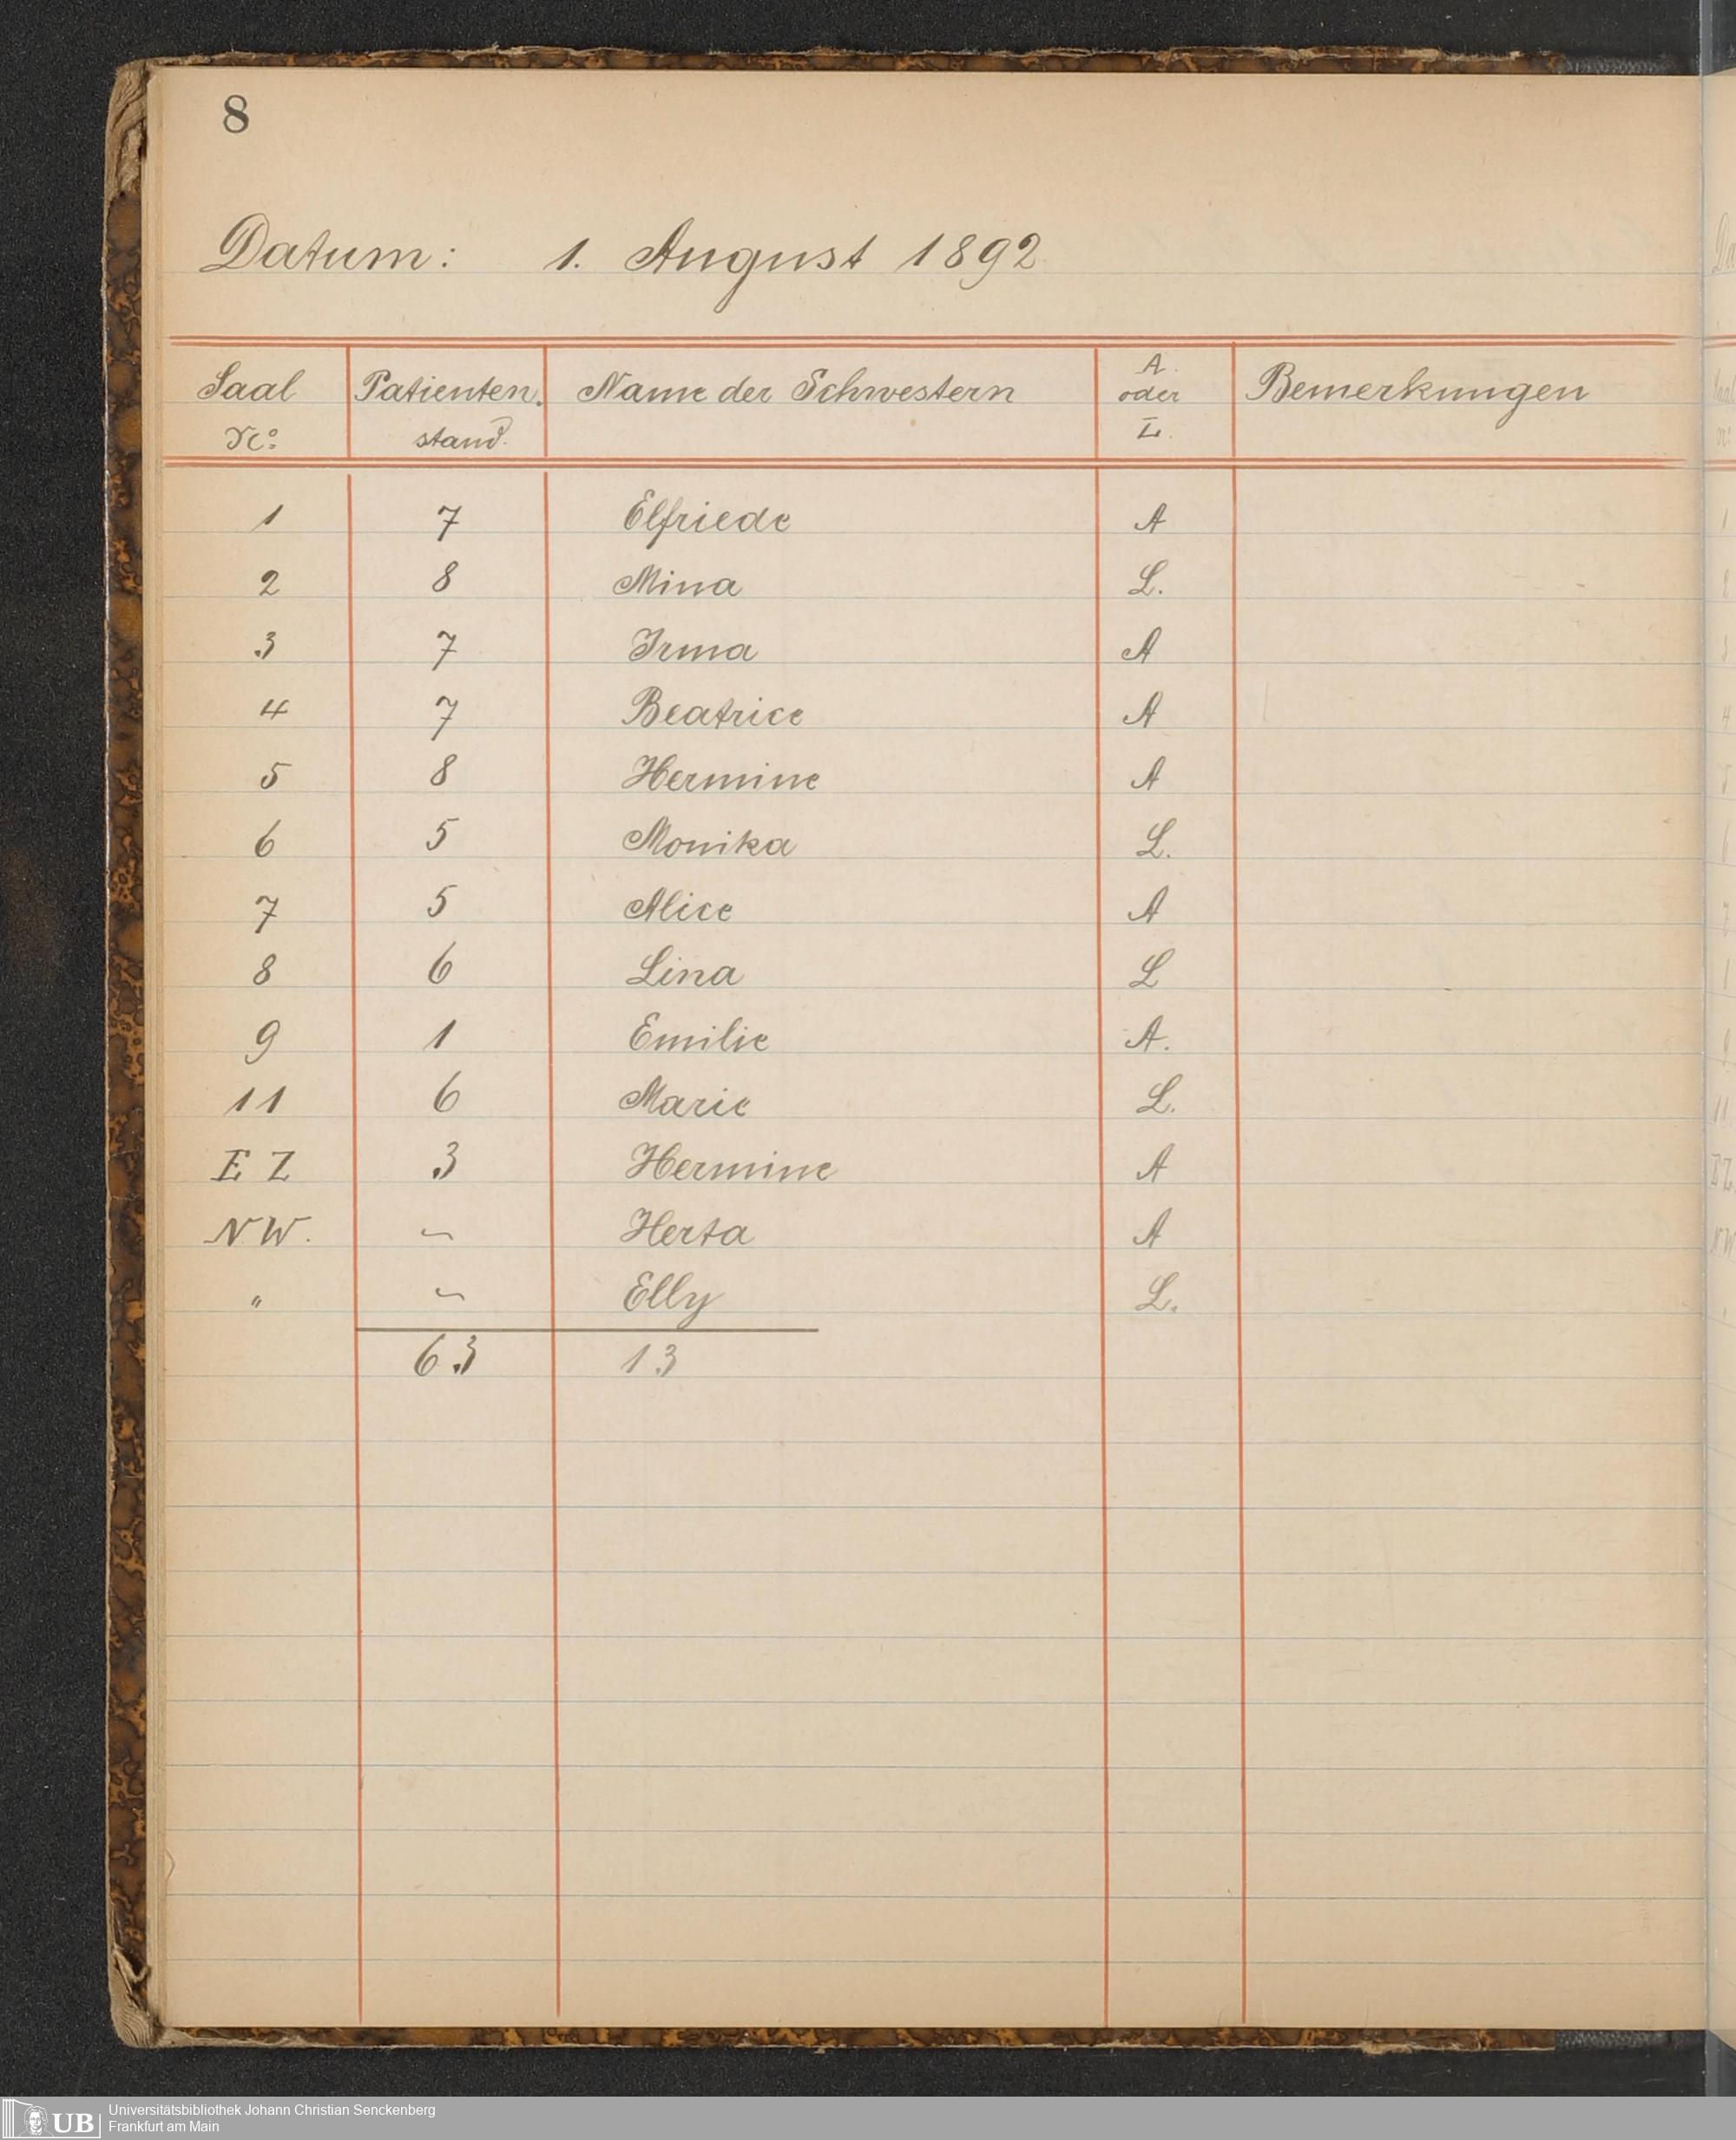 8
Datum: 1. August 1892
Saal No. Patienten. stand. Name der Schwestern A. oder L. Bemerkungen
1 7 Elfriede A
2 8 Mina L.
3 7 Irma A
4 7 Beatrice A
5 8 Hermine A
6 5 Monika L.
7 5 Alice A
8 6 Lina L
9 1 Emilie A.
11 6 Marie L.
E Z 3 Hermine A
NW. ~ Herta A
" ~ Elly L.
63 13
UB Universitätsbibliothek Johann Christian Senckenberg
Frankfurt am Main